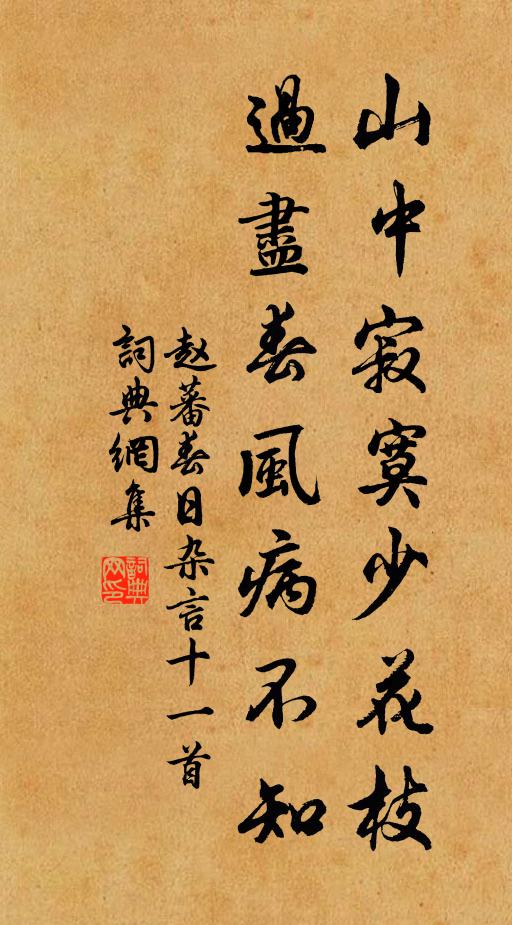 山中寂寞少花枝
過盡春風病不知
赵蕃春日杂言十一首
詞典網集
詞典网印